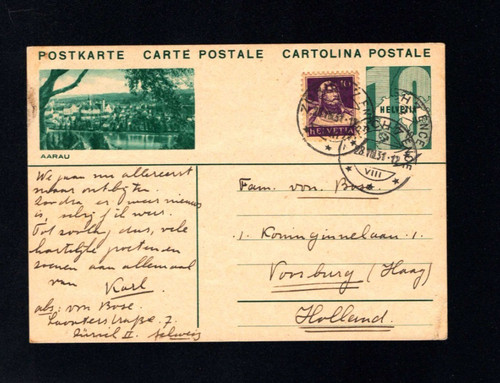 POSTKARTE CARTE POSTALE CARTOLINA POSTALE
10
HELVETIA
10
HELVETIA
28.VII.31.-12
VIII
AARAU
We gaan nu allereerst
maar ontbijten.
Zondra er weer nieuws
is, schrijf ik weer.
Tot zoolang dus, vele
hartelijke groeten en
zoenen aan allemaal
van Karl.
abs: von Bose.
7.
Zürich II. Schweiz
Fam. von Bose.
1. Koninginnelaan 1.
Voorburg (Haag)
Holland.